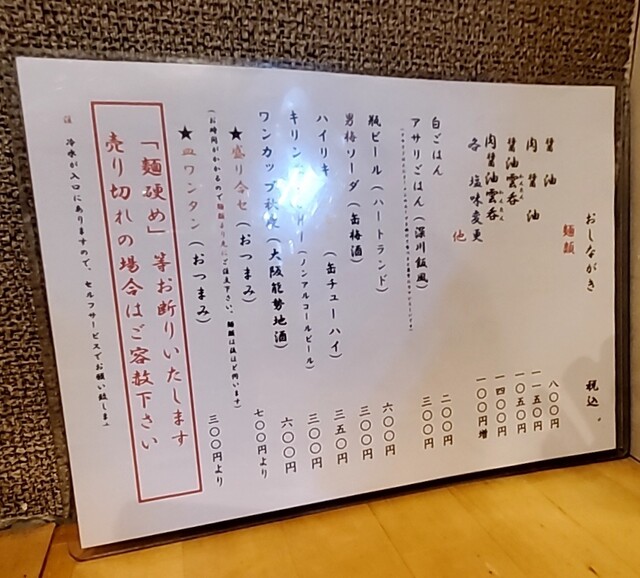 おしながき
税込
麺類
醤油 八〇〇円
肉醤油 一一五〇円
醤油雲呑 一〇五〇円
肉醤油雲呑 一四〇〇円
各塩味変更 一〇〇円増
他
白ごはん 二〇〇円
アサリごはん(深川飯風) 三〇〇円
瓶ビール(ハートランド) 六〇〇円
男梅ソーダ(缶梅酒) 三〇〇円
ハイリキ(缶チューハイ) 三五〇円
キリン(ノンアルコールビール) 三〇〇円
ワンカップ秋鹿(大阪能勢地酒) 六〇〇円
★盛り合せ(おつまみ) 七〇〇円より
(お時間がかかるので麺類より先にご注文下さい。麺類は後ほど伺います)
★皿ワンタン(おつまみ) 三〇〇円より
「麺硬め」等お断りいたします
売り切れの場合はご容赦下さい
冷水が入口にありますので、セルフサービスでお願い致します